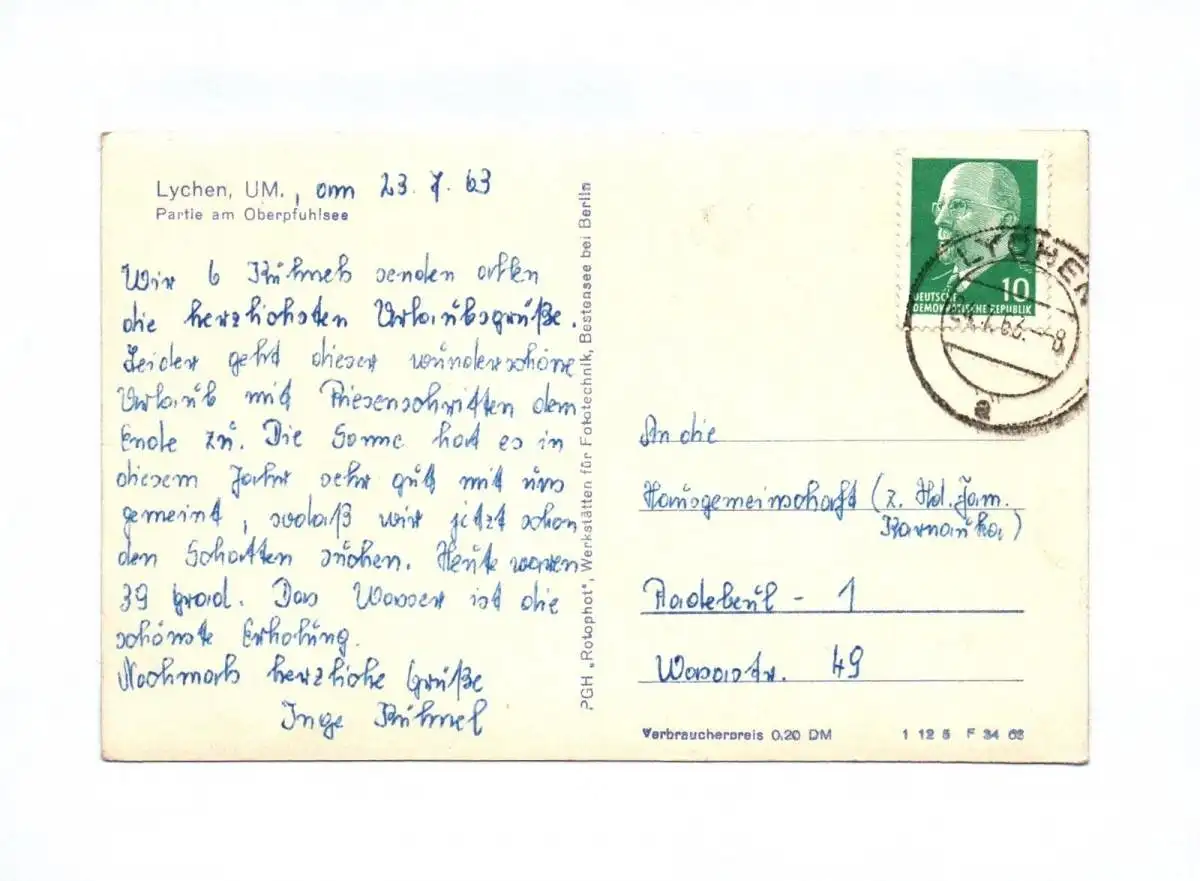 Lychen, UM., am 23.7.63
Partie am Oberpfuhlsee
Wir 6 Kühnels senden allen
die herzlichsten Urlaubsgrüße.
Leider geht dieser wunderschöne
Urlaub mit Riesenschritten dem
Ende zu. Die Sonne hat es in
diesem Jahr sehr gut mit uns
gemeint, sodaß wir jetzt schon
den Schatten suchen. Heute waren
39 Grad. Das Wasser ist die
schönste Erholung.
Nochmals herzliche Grüße
Inge Kühnel
PGH „Rotophot", Werkstätten für Fototechnik, Bestensee bei Berlin
10
DEUTSCHE
DEMOKRATISCHE REPUBLIK
LYCHEN
a
An die
Hausgemeinschaft (z. Hd. Fam.
Radebeul - 1
Wasastr. 49
Verbraucherpreis 0,20 DM 1 12 5 F 34 63